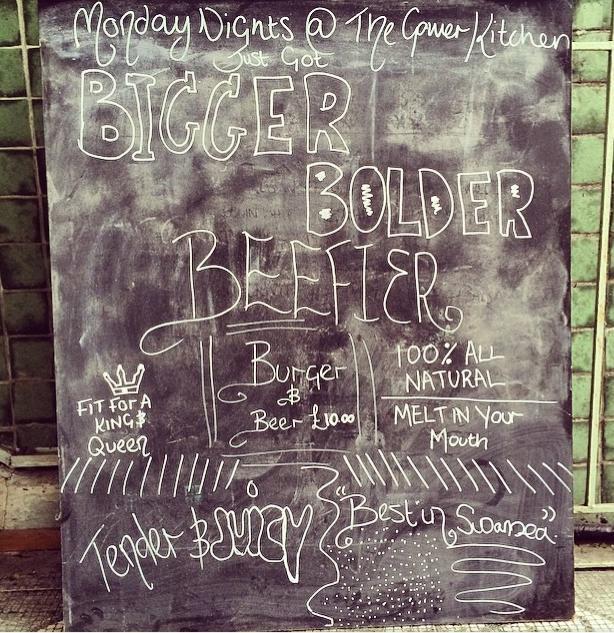 Monday Nights @ The Gower Kitchen
Just Got
BIGGER
BOLDER
BEEFIER
Burger
&
Beer £10.00
100% ALL
NATURAL
MELT IN Your
Mouth
FIT FOR A
KING &
Queen
Tender & JUICY
"Best in Swansea"